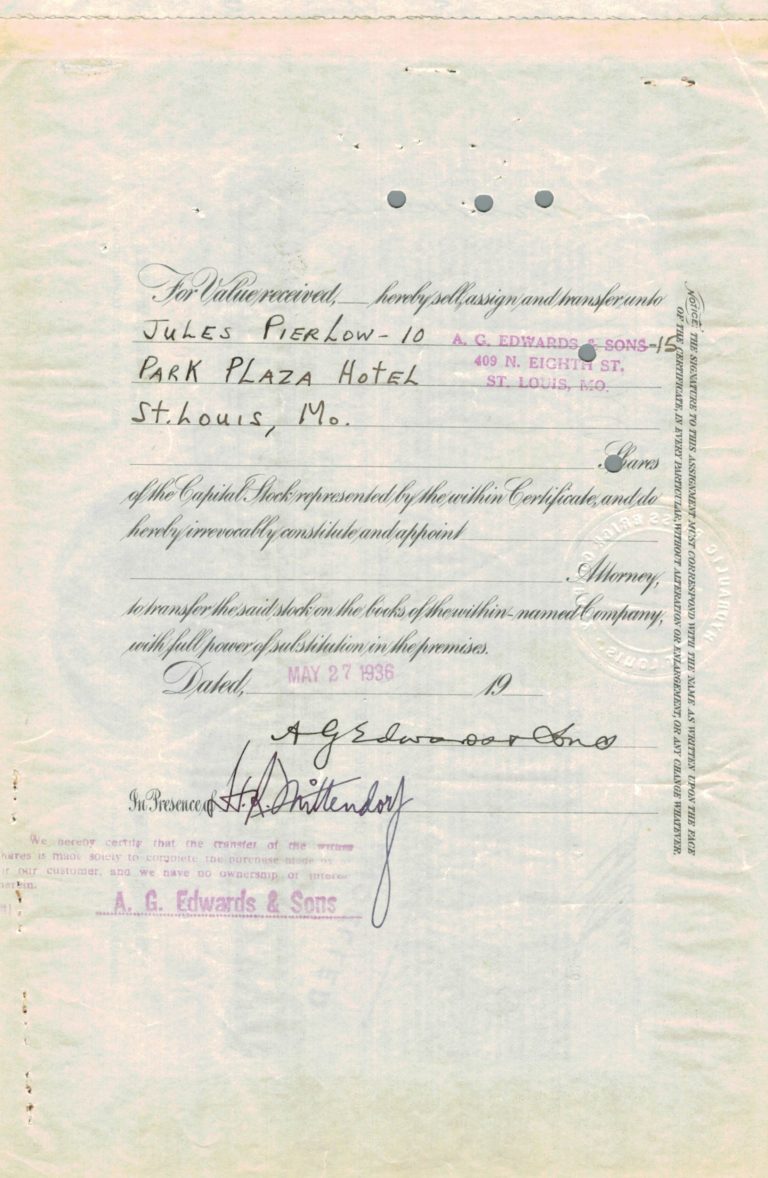 For Value received, hereby sell, assign and transfer unto
JULES PIERLOW - 10
A. G. EDWARDS & SONS -15
409 N. EIGHTH ST.
PARK PLAZA HOTEL
ST. LOUIS, MO.
ST. LOUIS, MO.
Shares
of the Capital Stock represented by the within Certificate, and do
hereby irrevocably constitute and appoint
Attorney,
to transfer the said stock on the books of the within-named Company,
with full power of substitution in the premises.
Dated, MAY 27 1936 19
A G Edwards & Sons
In Presence of H. R. Mittendorf
We hereby certify that the transfer of the within
shares is made solely to complete the purchase made by
our customer, and we have no ownership or
A. G. Edwards & Sons
NOTICE. THE SIGNATURE TO THIS ASSIGNMENT MUST CORRESPOND WITH THE NAME AS WRITTEN UPON THE FACE
OF THE CERTIFICATE, IN EVERY PARTICULAR, WITHOUT ALTERATION OR ENLARGEMENT, OR ANY CHANGE WHATEVER.